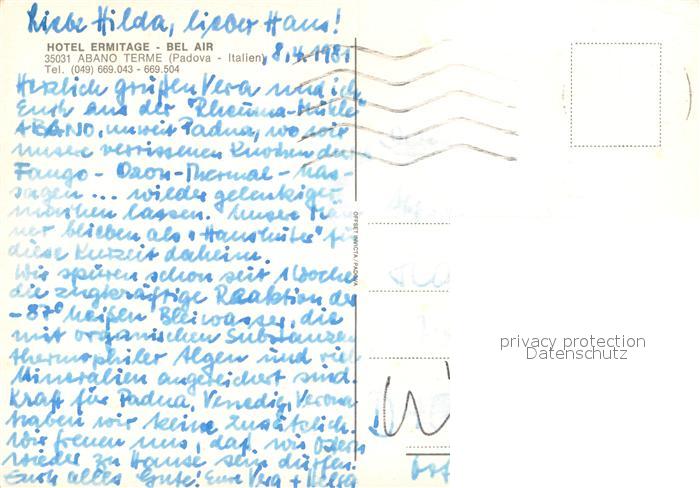 Liebe Hilda, lieber Hans!
HOTEL ERMITAGE - BEL AIR
35031 ABANO TERME (Padova - Italien)
Tel. (049) 669.043 - 669.504
8.4.1981
Herzlich grüßen Vera und ich
Euch aus der "Rheuma-Mühle"
ABANO, unweit Padua, wo wir
unsere verrissenen Knochen durch
Fango - Ozon-Thermal - Mas-
sagen ... wieder gelenkiger
machen lassen. Unsere Män-
ner blieben als "Haushüter" für
diese Kurzeit daheim.
Wir spüren schon seit 1 Woche
die zugkräftige Reaktion der
- 87° heißen Bleiwasser, die
mit organischen Substanzen
thermophiler Algen und viel
Mineralien angereichert sind.
Kraft für Padua, Venedig, Verona
haben wir keine zusätzlich.
Wir freuen uns, daß wir Ostern
wieder zu Hause sein dürfen.
Euch alles Gute! Eure Vera +
OFFSET INVICTA/PADOVA
privacy protection
Datenschutz